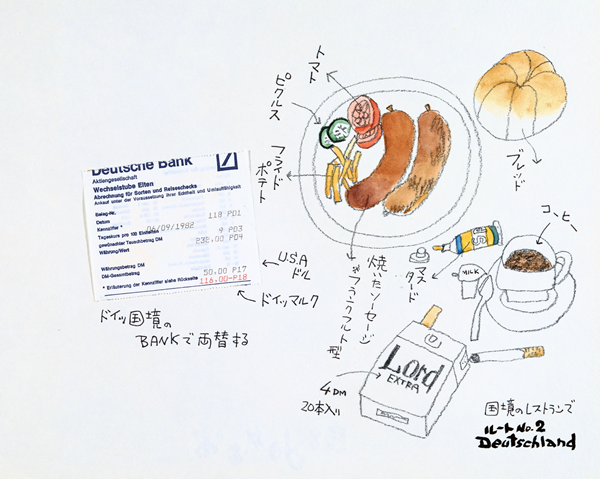 Deutsche Bank
Aktiengesellschaft
Wechselstube Elten
Abrechnung für Sorten und Reiseschecks
Ankauf unter der Voraussetzung ihrer Echtheit und Umlauffähigkeit
Beleg-Nr.
118 PD1
Datum
Kennziffer *
06/09/1982
Tageskurs pro 100 Einheiten
9 P03
gewünschter Tauschbetrag DM
232,00 P04
Währung/Wert
Währungsbetrag DM
50,00 P17
DM-Gesamtbetrag
116,00-P18
* Erläuterung der Kennziffer siehe Rückseite
USA
ドル
ドイツマルク
ドイツ国境の
BANKで両替する
トマト
ピクルス
フライド
ポテト
焼いたソーセージ
フランクフルト型
マスタード
ブレッド
コーヒー
MILK
Lord
EXTRA
4DM
20本入り
国境のレストランで
ルート No.2
Deutschland